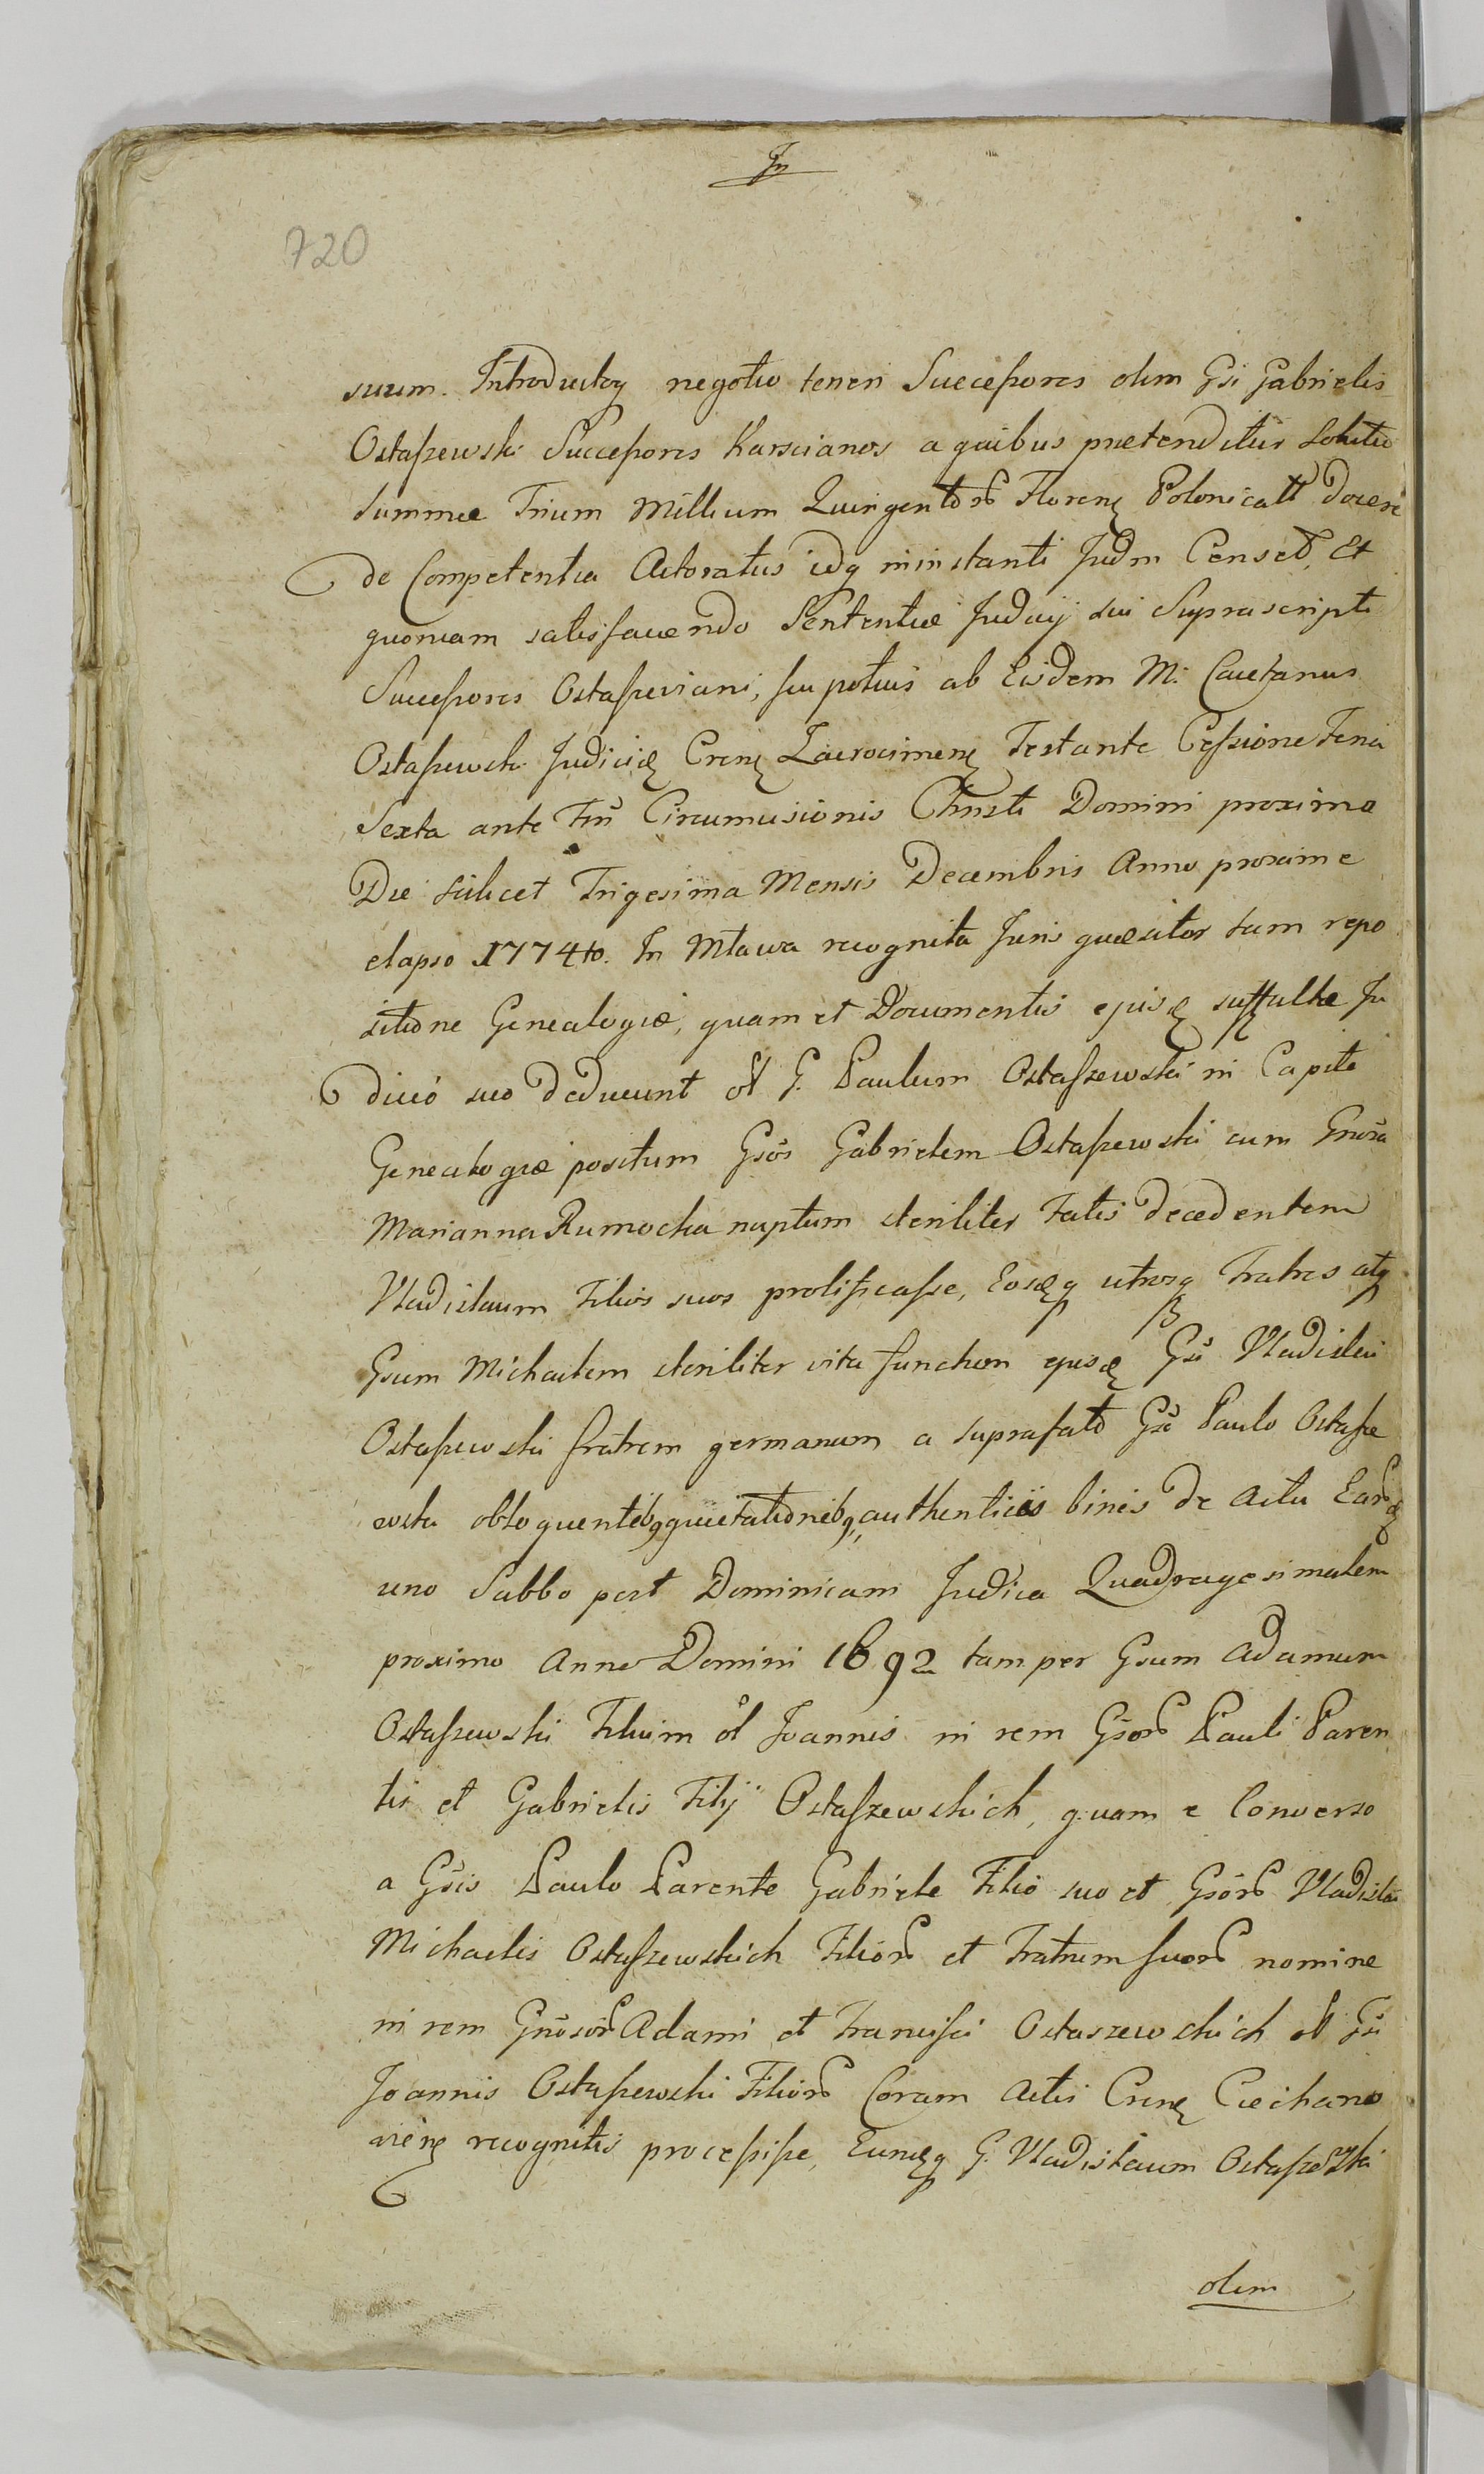 In
720
suum. Introductoq negotio teneri Successores olim Gsi Gabrielis
Ostaszewski Successores Karscianos a quibus prætenditur Solutio
Summæ Trium Millium Quingentor Floren Polonicall docere
de Competentia Actoratus idq in instanti Judm Censet, Et
quoniam satisfaciendo Sententiæ Judicij sui Suprascripti
Successores Ostaszeviani, seu potius ab Eisdem M. Caietanus
Ostaszewski Judicial Cren Zacrocimen Testante Cessione Feria
Sexta ante Fm Circumcisionis Christi Domini proxima
Die Scilicet Trigesima Mensis Decembris Anno proxime
elapso 1774to. In Mława recognita Juris quæsitor tam repo
sitione Genealogiæ, quam et Documentis ejusd suffultæ Ju
dicio suo deducunt ol G. Paulum Ostaszewski in Capite
Genealogiæ positum Gsos Gabrielem Ostaszewski cum Gnosa
Marianna Rumocka nuptum steriliter Fatis decedentem
Vladislaum Filios suos prolificasse, Eosdq utrosq Fratres atq
Gsum Michaelem steriliter vita functum ejusd Gsi Vladislai
Ostaszewski fratrem germanum a suprafato Gso Paulo Ostasze
wski obloquentibq quietationibq, authenticis binis de Actu Eard
uno Sabbo post Dominicam Judica Quadragesimalem
proximo Anno Domini 1692 tam per Gsum Adamum
Ostaszewski Filium ol Joannis in rem Gsor Pauli Paren
tis et Gabrielis Filij Ostaszewskich, quam e Converso
a Gsis Paulo Parente Gabriele Filio suo et Gsor Vladislai
Michaelis Ostaszewskich Filior et Fratrum suor nomine
in rem Gnosor Adami et Francisci Ostaszewskich ol Gsi
Joannis Ostaszewski Filior Coram Actis Cren Ciechano
vien recognitis processisse, Eumdq G. Vladislaum Ostaszewski
olim